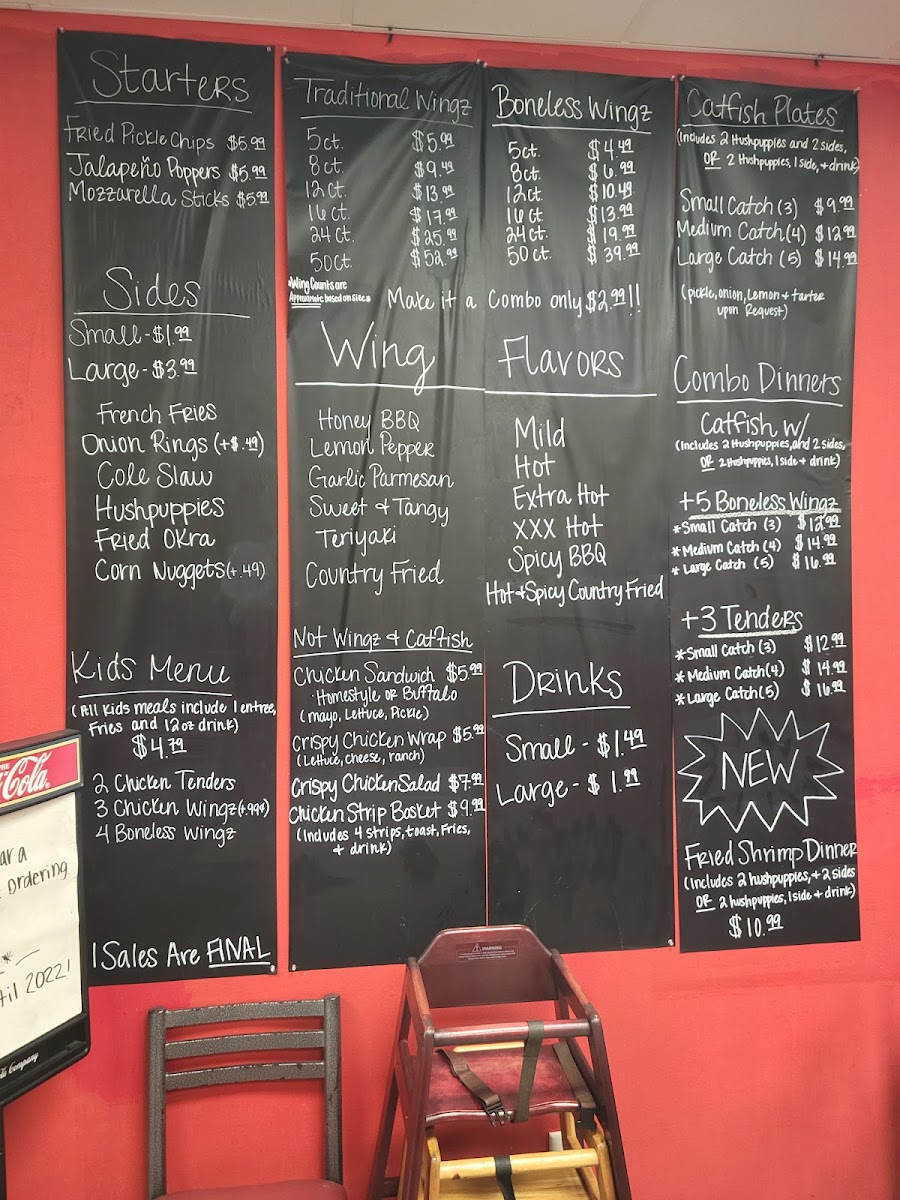 Starters
Fried Pickle Chips $5.99
Jalapeño Poppers $5.99
Mozzarella Sticks $5.99
Sides
Small - $1.99
Large - $3.99
French Fries
Onion Rings (+$.49)
Cole Slaw
Hushpuppies
Fried Okra
Corn Nuggets (+.49)
Kids Menu
(All kids meals include 1 entree,
Fries and 12oz drink)
$4.79
2 Chicken Tenders
3 Chicken Wingz (+.99¢)
4 Boneless Wingz
l Sales Are FINAL
Traditional Wingz
5ct. $5.99
8ct. $9.49
12ct. $13.99
16ct. $17.99
24ct. $25.99
50ct. $52.99
*Wing Counts are
Approximate based on size*
Boneless Wingz
5ct. $4.49
8ct. $6.99
12ct. $10.49
16ct $13.99
24ct. $19.99
50ct. $39.99
Make it a Combo only $2.99!!
Wing Flavors
Honey BBQ
Lemon Pepper
Garlic Parmesan
Sweet & Tangy
Teriyaki
Country Fried
Mild
Hot
Extra Hot
XXX Hot
Spicy BBQ
Hot & Spicy Country Fried
Not Wingz & Catfish
Chicken Sandwich $5.99
Homestyle OR Buffalo
(mayo, Lettuce, Pickle)
Crispy Chicken Wrap $5.99
(Lettuce, cheese, ranch)
Crispy Chicken Salad $7.99
Chicken Strip Basket $9.99
(Includes 4 strips, toast, Fries,
& drink)
Drinks
Small - $1.49
Large - $1.99
Catfish Plates
(Includes 2 Hushpuppies and 2 sides,
OR 2 Hushpuppies, 1 side, & drink)
Small Catch (3) $9.99
Medium Catch (4) $12.99
Large Catch (5) $14.99
(pickle, onion, Lemon & tarter
upon Request)
Combo Dinners
Catfish w/
(Includes 2 Hushpuppies, and 2 sides,
OR 2 Hushpuppies, 1 side & drink)
+5 Boneless Wingz
*Small Catch (3) $12.99
*Medium Catch (4) $14.99
*Large Catch (5) $16.99
+3 Tenders
*Small Catch (3) $12.99
*Medium Catch (4) $14.99
*Large Catch (5) $16.99
NEW
Fried Shrimp Dinner
(Includes 2 hushpuppies, & 2 sides
OR 2 hushpuppies, 1 side & drink)
$10.99
Cola
ar a
ordering
til 2022!
Company
WARNING